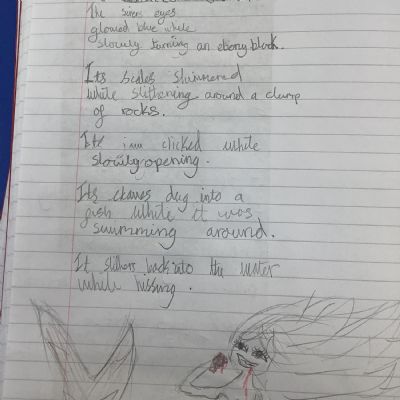 The sirens eyes
glowed blue while
slowly turning an ebony black.
Its scales shimmered
while slithering around a clump
of rocks.
Its jaw clicked while
slowly opening.
Its claws dug into a
fish while it was
swimming around.
It slithers back into the water
while hissing.